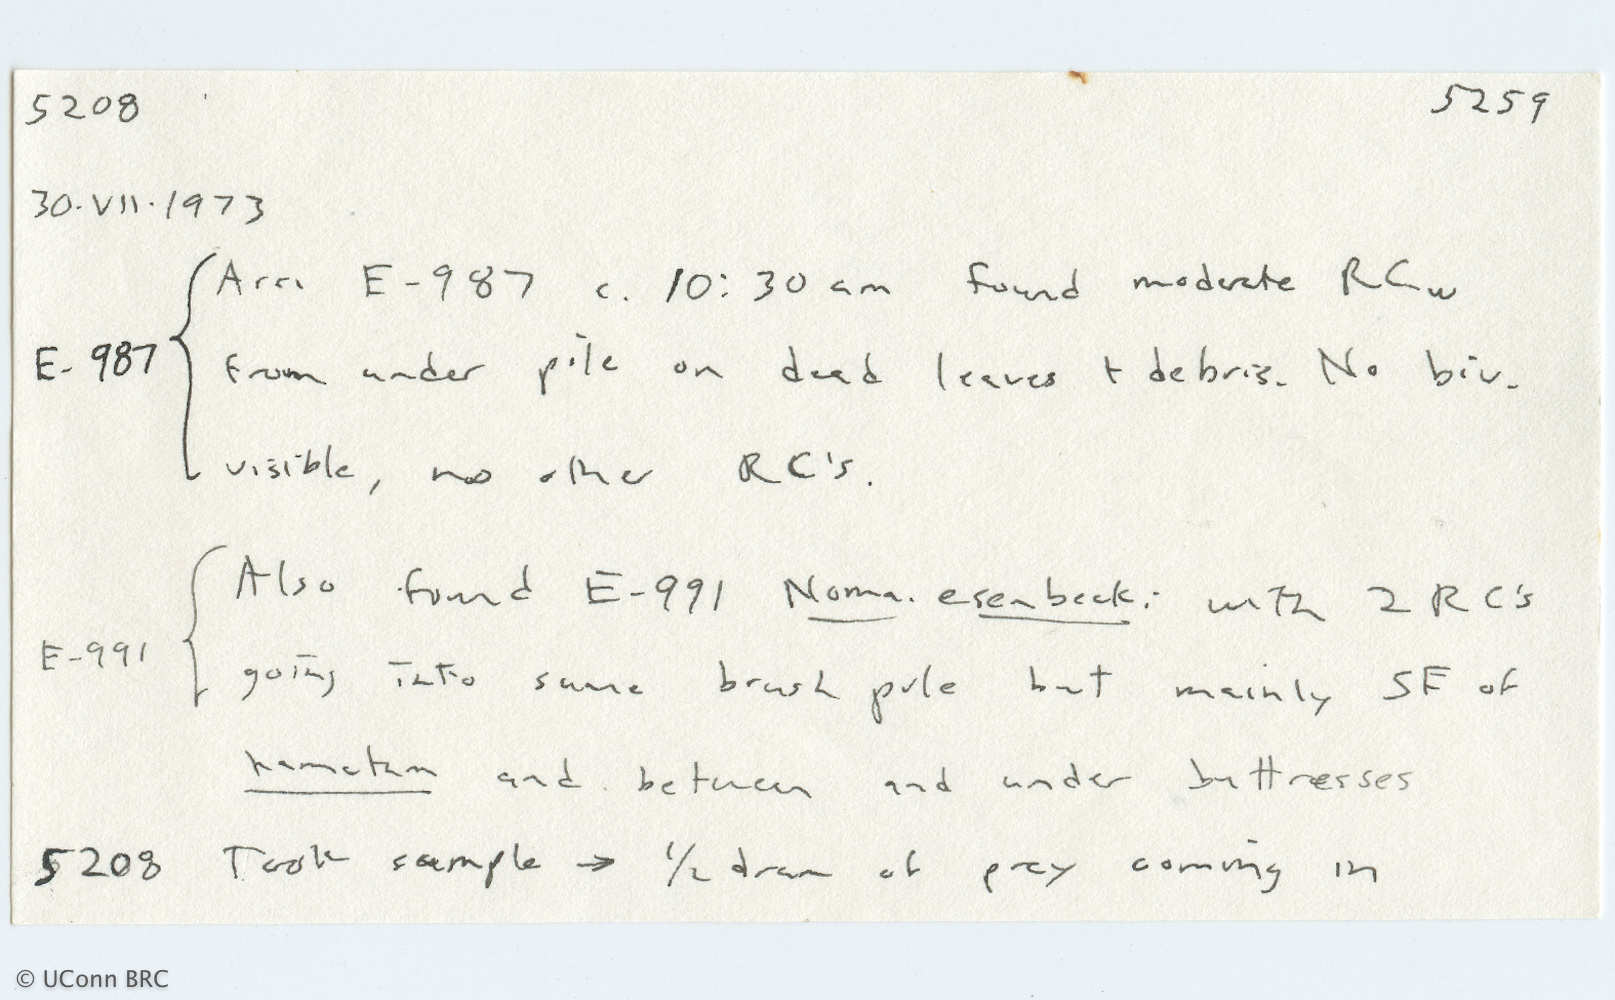 5208 5259
30.VII.1973
Arr. E-987 c. 10:30 am found moderate RCw
E-987 from under pile on dead leaves + debris. No biv.
visible, no other RC's.
Also found E-991 Noma. esenbecki with 2 RC's
E-991 going into same brush pile but mainly SE of
hamatum and between and under buttresses
5208 Took sample → 1/2 dram of prey coming in
© UConn BRC